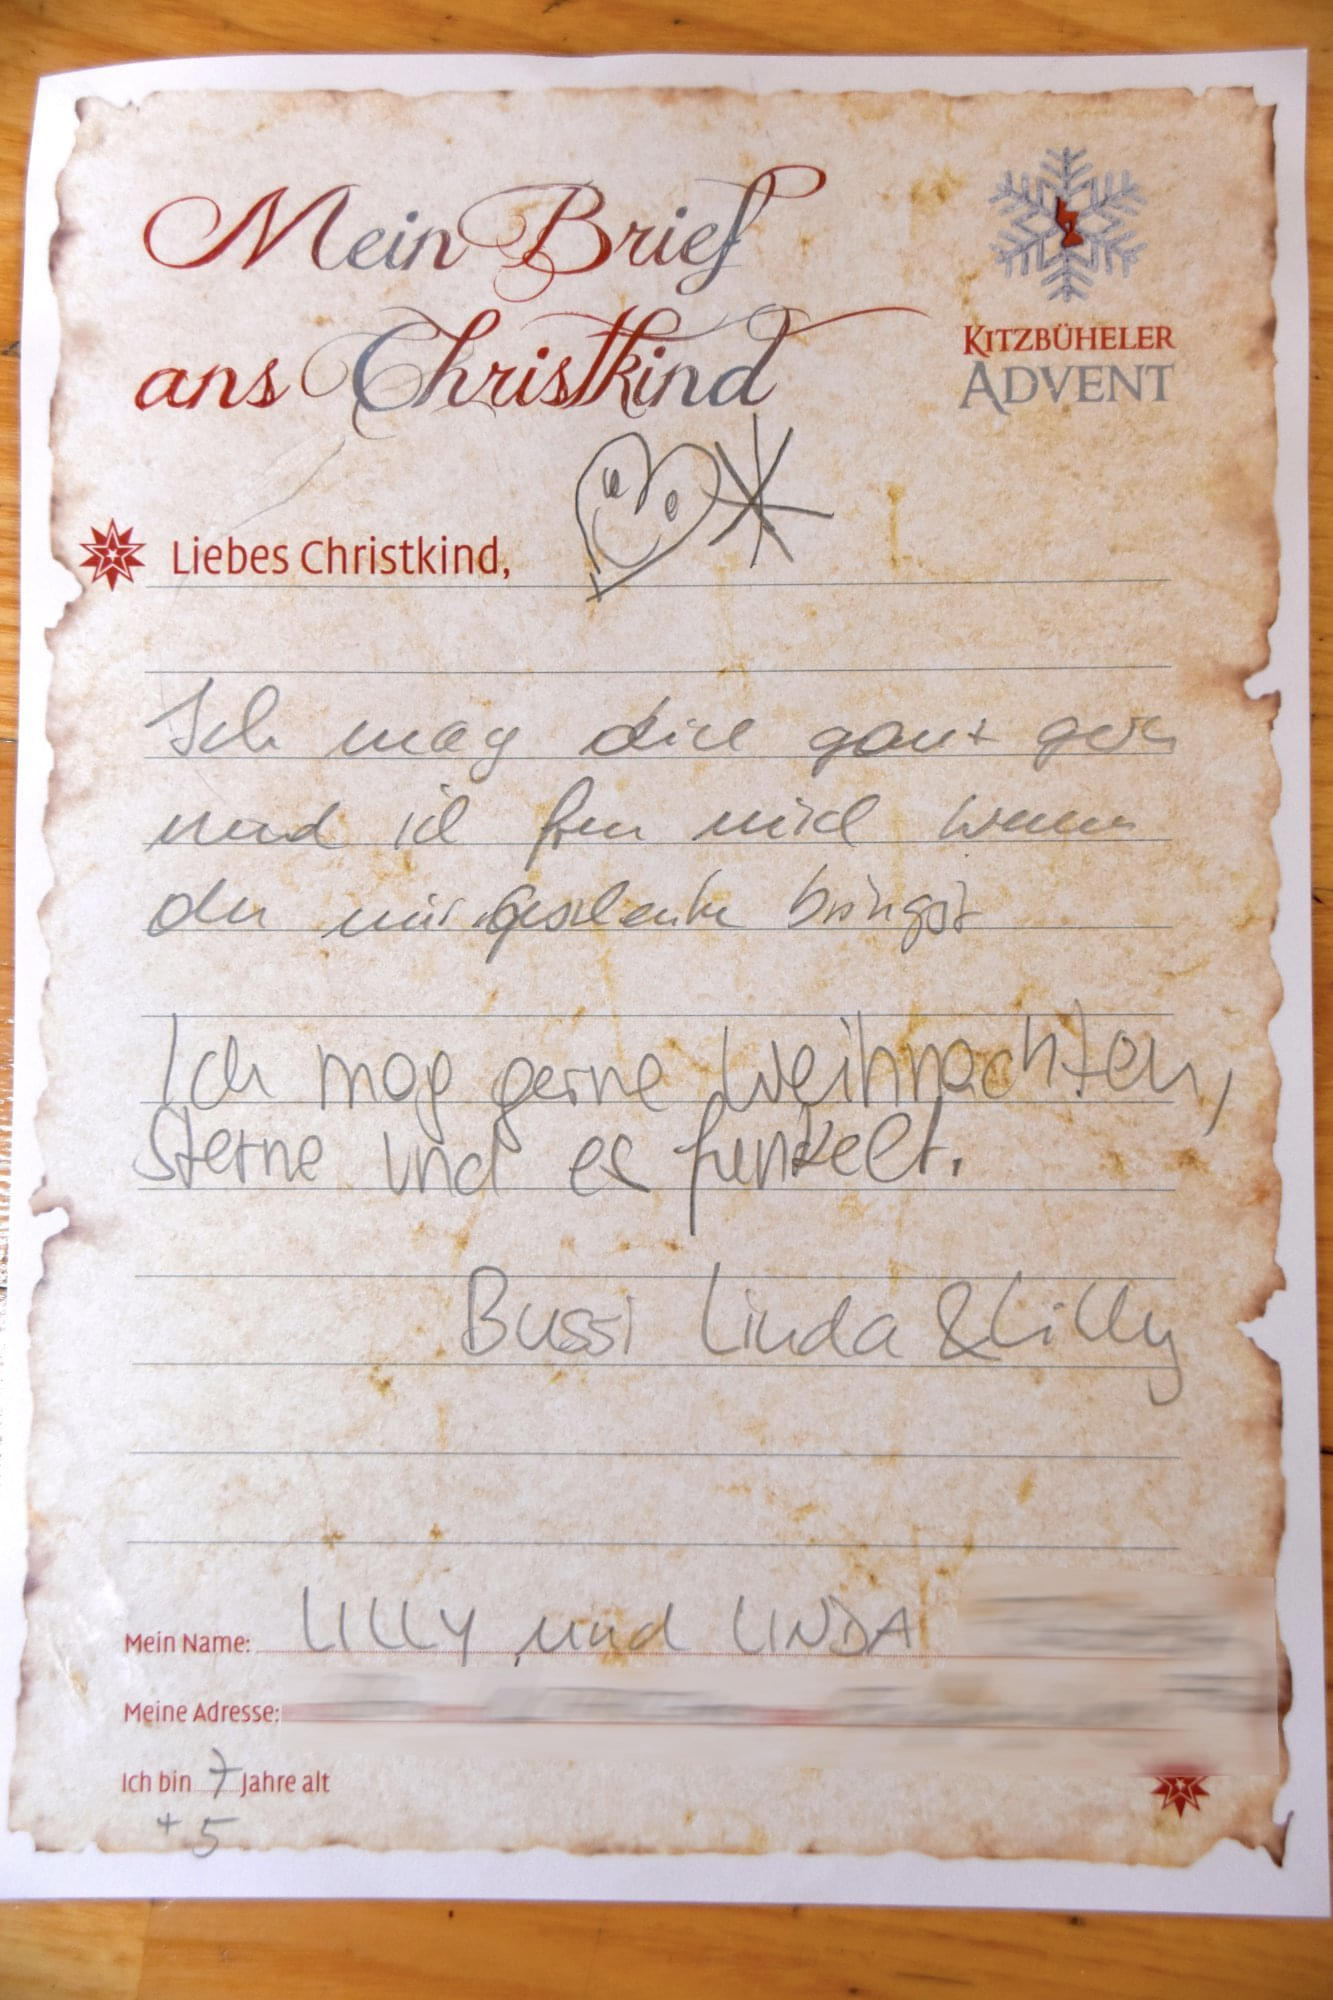 Mein Brief
ans Christkind
KITZBÜHELER
ADVENT
Liebes Christkind,
Ich mag dich ganz gern
und ich freu mich wenn
du mir geschenke bringst
Ich mag gerne Weihnachten,
Sterne und es funkelt.
Bussi Linda & Lilly
Mein Name: LILLY und LINDA
Meine Adresse:
Ich bin 7 Jahre alt
+ 5